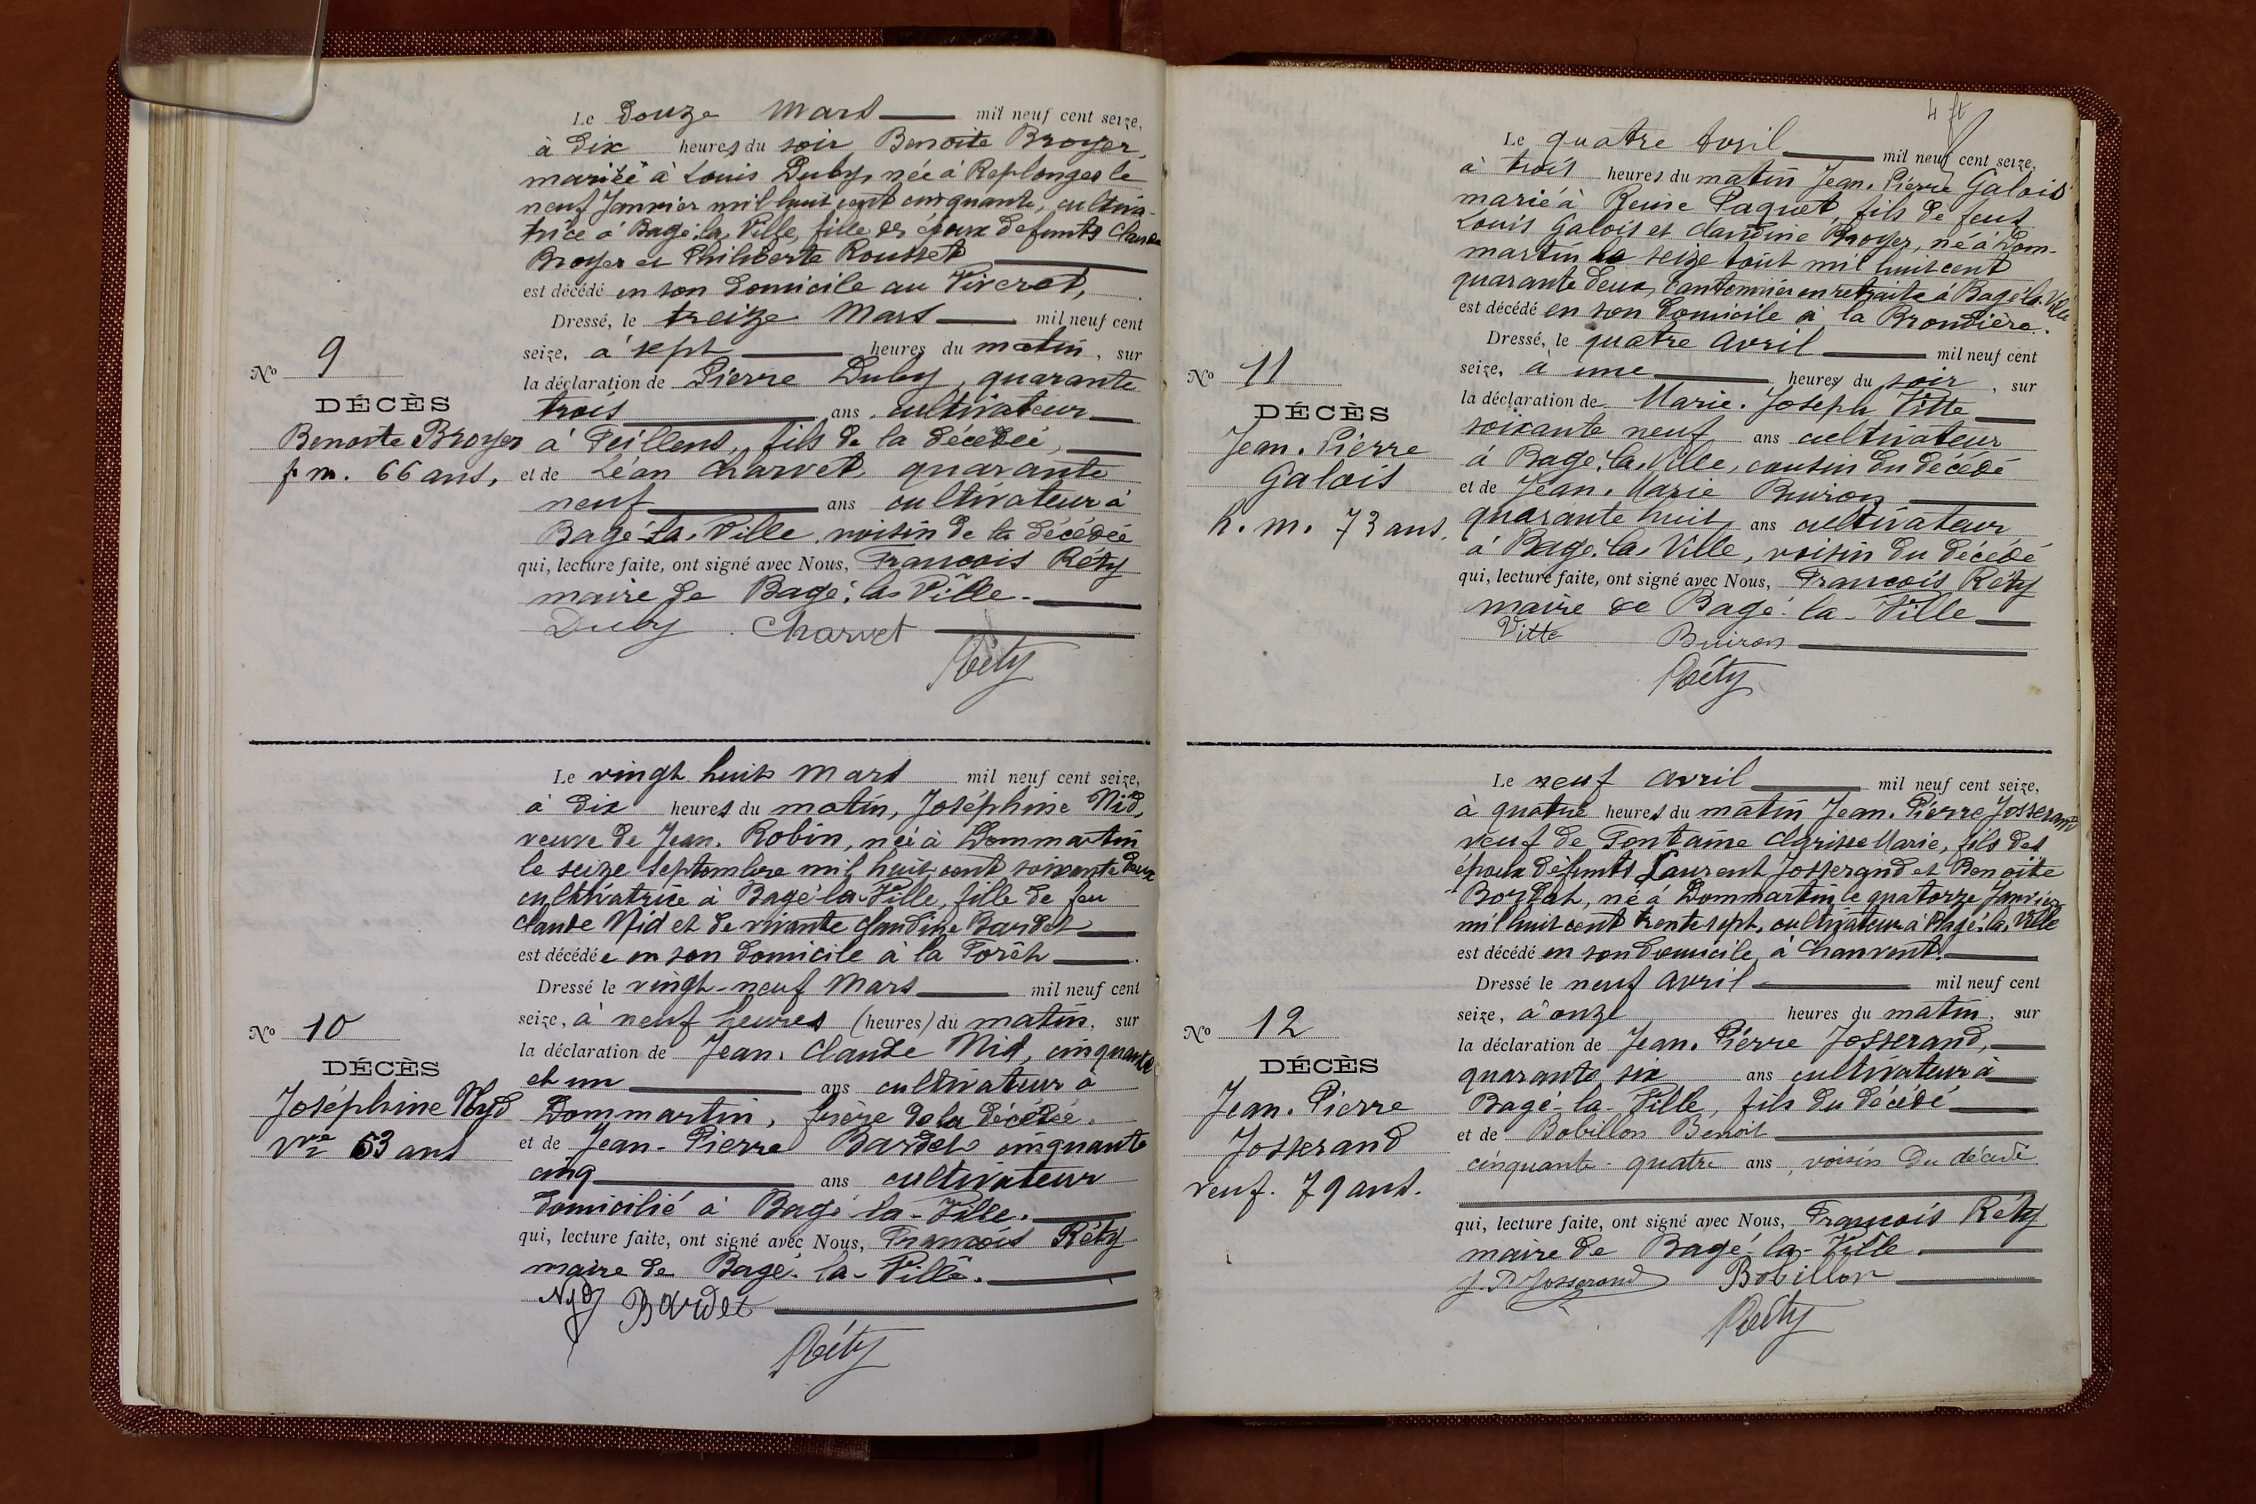 Le douze Mars mil neuf cent seize,
à dix heures du soir Benoite Broyer,
mariée à Louis Duby, née à Replonges le
neuf Janvier mil huit cent cinquante, cultiva-
trice à Bagé-la-Ville, fille des époux défunts Claude
Broyer et Philiberte Rousset
est décédé en son domicile au Viveret,
Dressé, le treize Mars mil neuf cent
seize, à sept heures du matin, sur
No 9
la déclaration de Pierre Duby, quarante
DÉCÈS
trois ans cultivateur
Benoite Broyer
à Feillens, fils de la décédée,
f. m. 66 ans,
et de Léon Charvet quarante
neuf ans cultivateur à
Bagé-la-Ville, voisin de la décédée
qui, lecture faite, ont signé avec Nous, François Réty
maire de Bagé-la-Ville.
Duby Charvet
Réty
Le vingt huit Mars mil neuf cent seize,
à dix heures du matin, Joséphine Nid,
veuve de Jean Robin, née à Dommartin
le seize Septembre mil huit cent soixante deux
cultivatrice à Bagé-la-Ville, fille de feu
Claude Nid et de vivante Claudine Bardet
est décédée en son domicile à la Forêt
Dressé le vingt-neuf Mars mil neuf cent
seize, à neuf heures (heures) du matin, sur
No 10
la déclaration de Jean-Claude Nid, cinquante
DÉCÈS
et un ans cultivateur à
Joséphine Nyd
Dommartin, frère de la décédée.
Vve 53 ans
et de Jean-Pierre Bardet cinquante
cinq ans cultivateur
domicilié à Bagé-la-Ville.
qui, lecture faite, ont signé avec Nous, François Réty
maire de Bagé-la-Ville.
Nyd Bardet
Réty
Le quatre Avril mil neuf cent seize,
à trois heures du matin Jean-Pierre Galois
marié à Reine Paquet, fils de feus
Louis Galois et Claudine Broyer, né à Dom-
martin le seize Août mil huit cent
quarante deux, Cantonnier en retraite à Bagé-la-Ville
est décédé en son domicile à la Brondière.
Dressé, le quatre Avril mil neuf cent
seize, à une heures du soir, sur
No 11
la déclaration de Marie-Joseph Vitte
DÉCÈS
soixante neuf ans cultivateur
Jean-Pierre
Galois
à Bagé-la-Ville, cousin du décédé
et de Jean-Marie Buiron
h. m. 73 ans.
quarante huit ans cultivateur
à Bagé-la-Ville, voisin du décédé
qui, lecture faite, ont signé avec Nous, François Réty
maire de Bagé-la-Ville
Vitte Buiron
Réty
Le neuf Avril mil neuf cent seize,
à quatre heures du matin Jean-Pierre Josserand
veuf de Fontaine Clarisse Marie, fils des
époux défunts Laurent Josserand et Benoite
né à Dommartin le quatorze Janvier
mil huit cent trente sept, cultivateur à Bagé-la-Ville
est décédé en son domicile, à Chanvent.
Dressé le neuf Avril mil neuf cent
seize, à onze heures du matin, sur
No 12
la déclaration de Jean-Pierre Josserand,
DÉCÈS
quarante six ans cultivateur à
Jean-Pierre
Bagé-la-Ville, fils du décédé
Josserand
et de Bobillon Benoit
veuf. 79 ans.
cinquante-quatre ans, voisin du décédé
qui, lecture faite, ont signé avec Nous, François Réty
maire de Bagé-la-Ville.
J. P. Josserand Bobillon
Réty